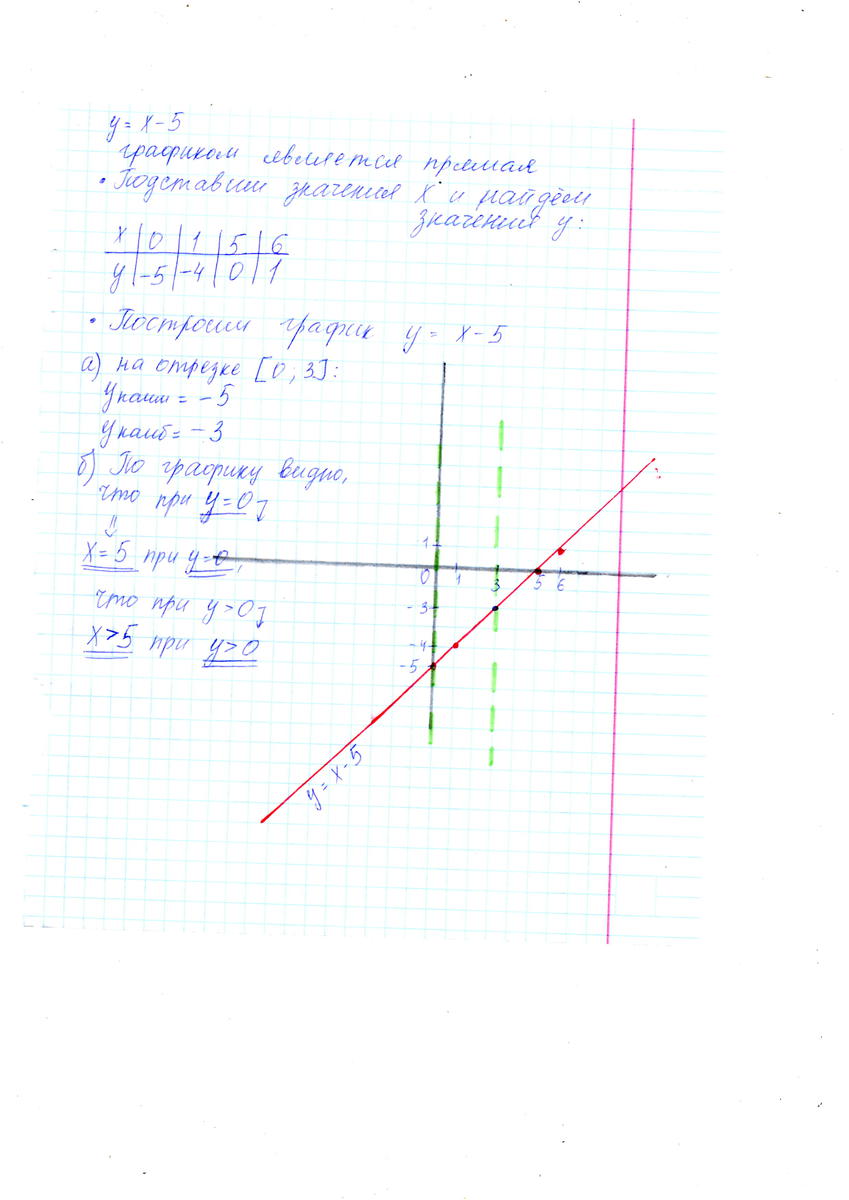 y = x - 5
графиком является прямая
• Подставим значения x и найдём
значения y:
x | 0 | 1 | 5 | 6
y | -5 | -4 | 0 | 1
• Построим график y = x - 5
а) на отрезке [0; 3]:
yнаим = -5
yнаиб = -3
б) По графику видно,
что при y = 0
⇓
x = 5 при y = 0,
что при y > 0
x > 5 при y > 0
1
0 1 3 5 6
-3
-4
-5
y = x - 5